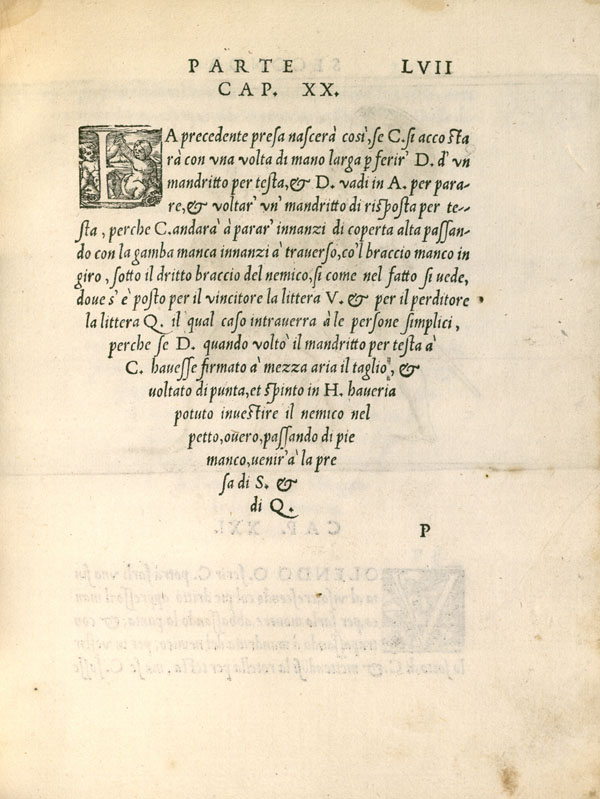 PARTE LVII
CAP. XX.
LA precedente presa nascerà così, se C. si accosta
rà con vna volta di mano larga ꝑ ferir' D. d' vn
mandritto per testa, & D. vadi in A. per para-
re, & voltar' vn' mandritto di risposta per te--
sta, perche C. andarà à parar' innanzi di coperta alta passan-
do con la gamba manca innanzi à trauerso, co'l braccio manco in
giro, sotto il dritto braccio del nemico, si come nel fatto si uede,
doue s' è posto per il vincitore la littera V. & per il perditore
la littera Q. il qual caso intrauerra à le persone simplici,
perche se D. quando voltò il mandritto per testa à
C. hauesse firmato à mezza aria il taglio, &
uoltato di punta, et spinto in H. haueria
potuto inuestire il nemico nel
petto, ouero, passando di pie
manco, uenir' à la pre
sa di S. &
di Q.
P
CAP. XXI.
VOLENDO